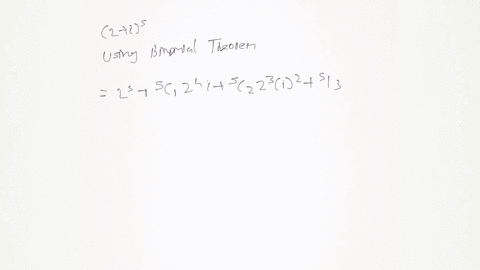 (2+i)⁵
Using Binomial Theorem
= 2⁵ + ⁵C₁ 2⁴ i + ⁵C₂ 2³(i)² + ⁵C₃